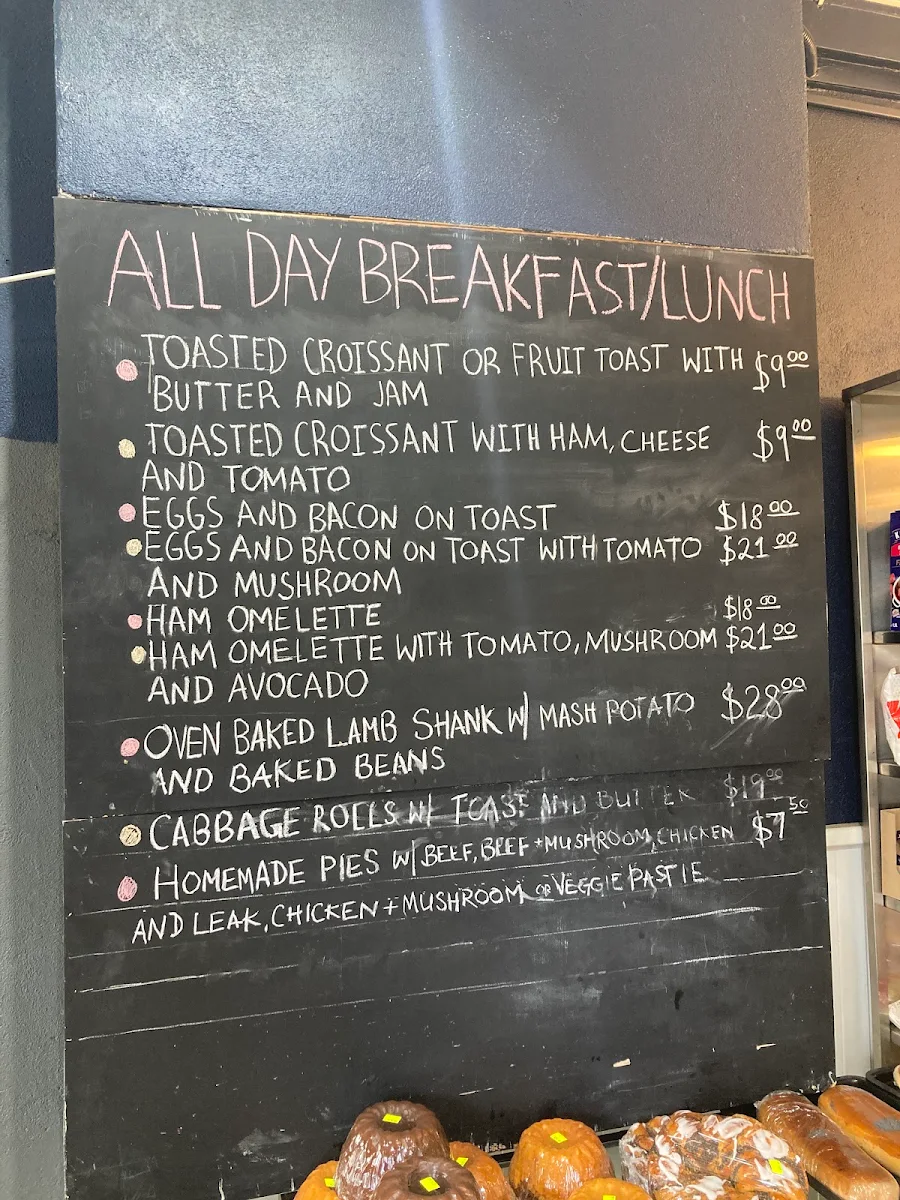 ALL DAY BREAKFAST/LUNCH
TOASTED CROISSANT OR FRUIT TOAST WITH $9.00
BUTTER AND JAM
TOASTED CROISSANT WITH HAM, CHEESE $9.00
AND TOMATO
EGGS AND BACON ON TOAST $18.00
EGGS AND BACON ON TOAST WITH TOMATO $21.00
AND MUSHROOM
HAM OMELETTE $18.00
HAM OMELETTE WITH TOMATO, MUSHROOM $21.00
AND AVOCADO
OVEN BAKED LAMB SHANK W/ MASH POTATO $28.00
AND BAKED BEANS
CABBAGE ROLLS W/ TOAST AND BUTTER $19.00
HOMEMADE PIES W/ BEEF, BEEF + MUSHROOM, CHICKEN $7.50
AND LEAK, CHICKEN + MUSHROOM OR VEGGIE PASTIE